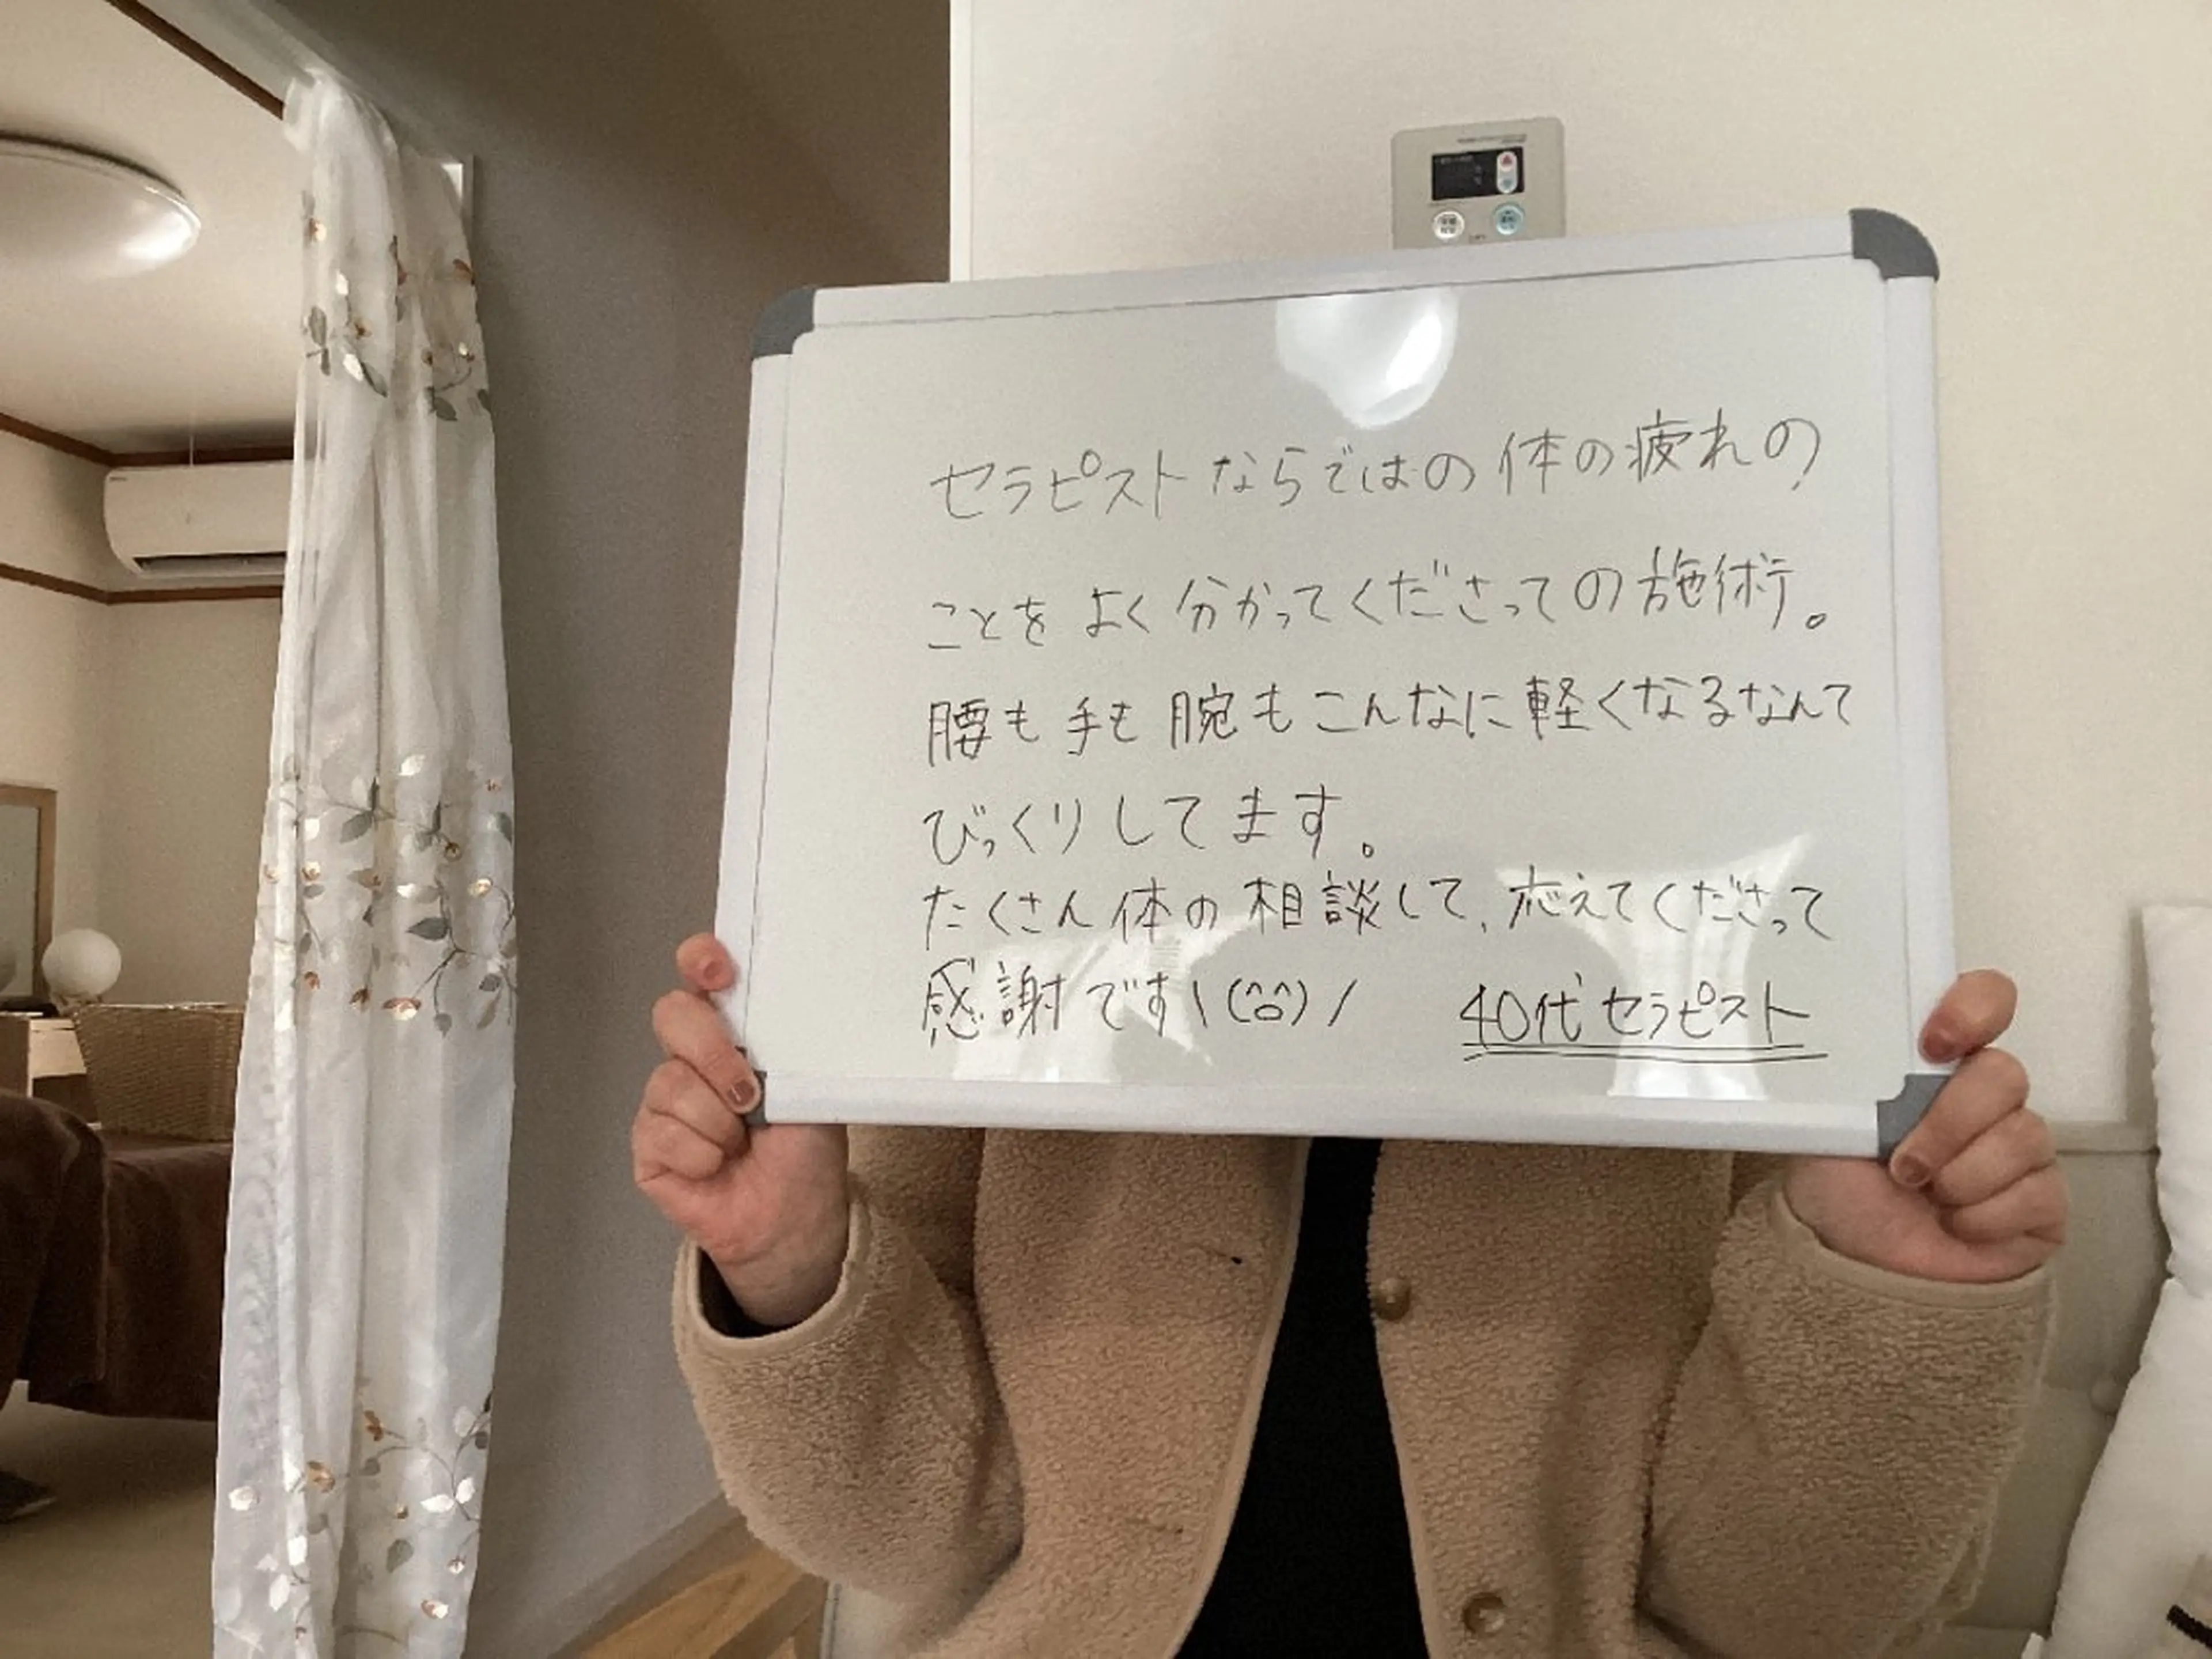 セラピストならではの体の疲れの
ことをよく分かってくださっての施術。
腰も手も腕もこんなに軽くなるなんて
びっくりしてます。
たくさん体の相談して、応えてくださって
感謝です\(^o^)/
40代セラピスト